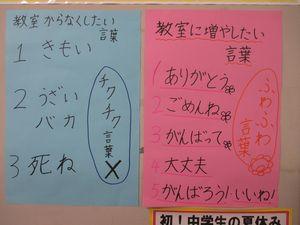 教室からなくしたい
言葉
1 きもい
2 うざい
バカ
3 死ね
チクチク
言葉
×
教室に増やしたい
言葉
1 ありがとう
2 ごめんね
3 がんばって
4 大丈夫
5 がんばろう!いいね!
ふわふわ
言葉
初!中学生の夏休み